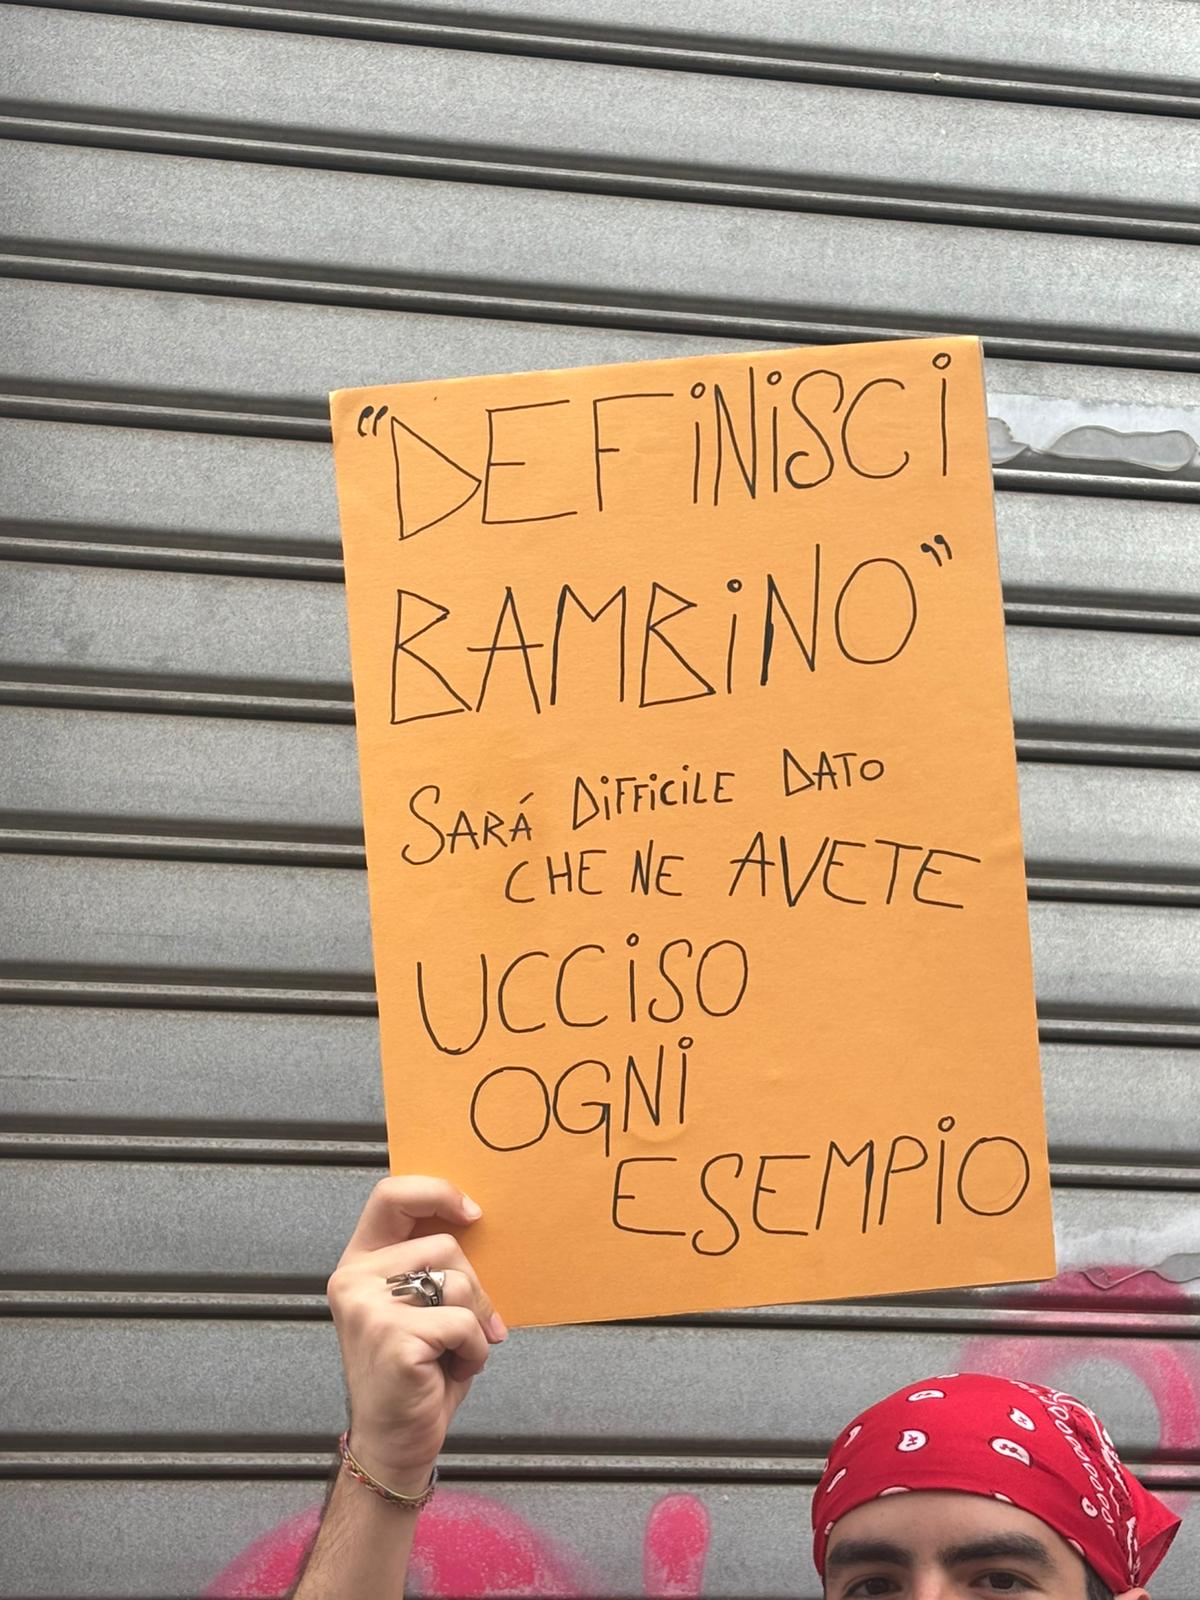 “DEFINISCI
BAMBINO”
SARÁ DIFFICILE DATO
CHE NE AVETE
UCCISO
OGNI
ESEMPIO